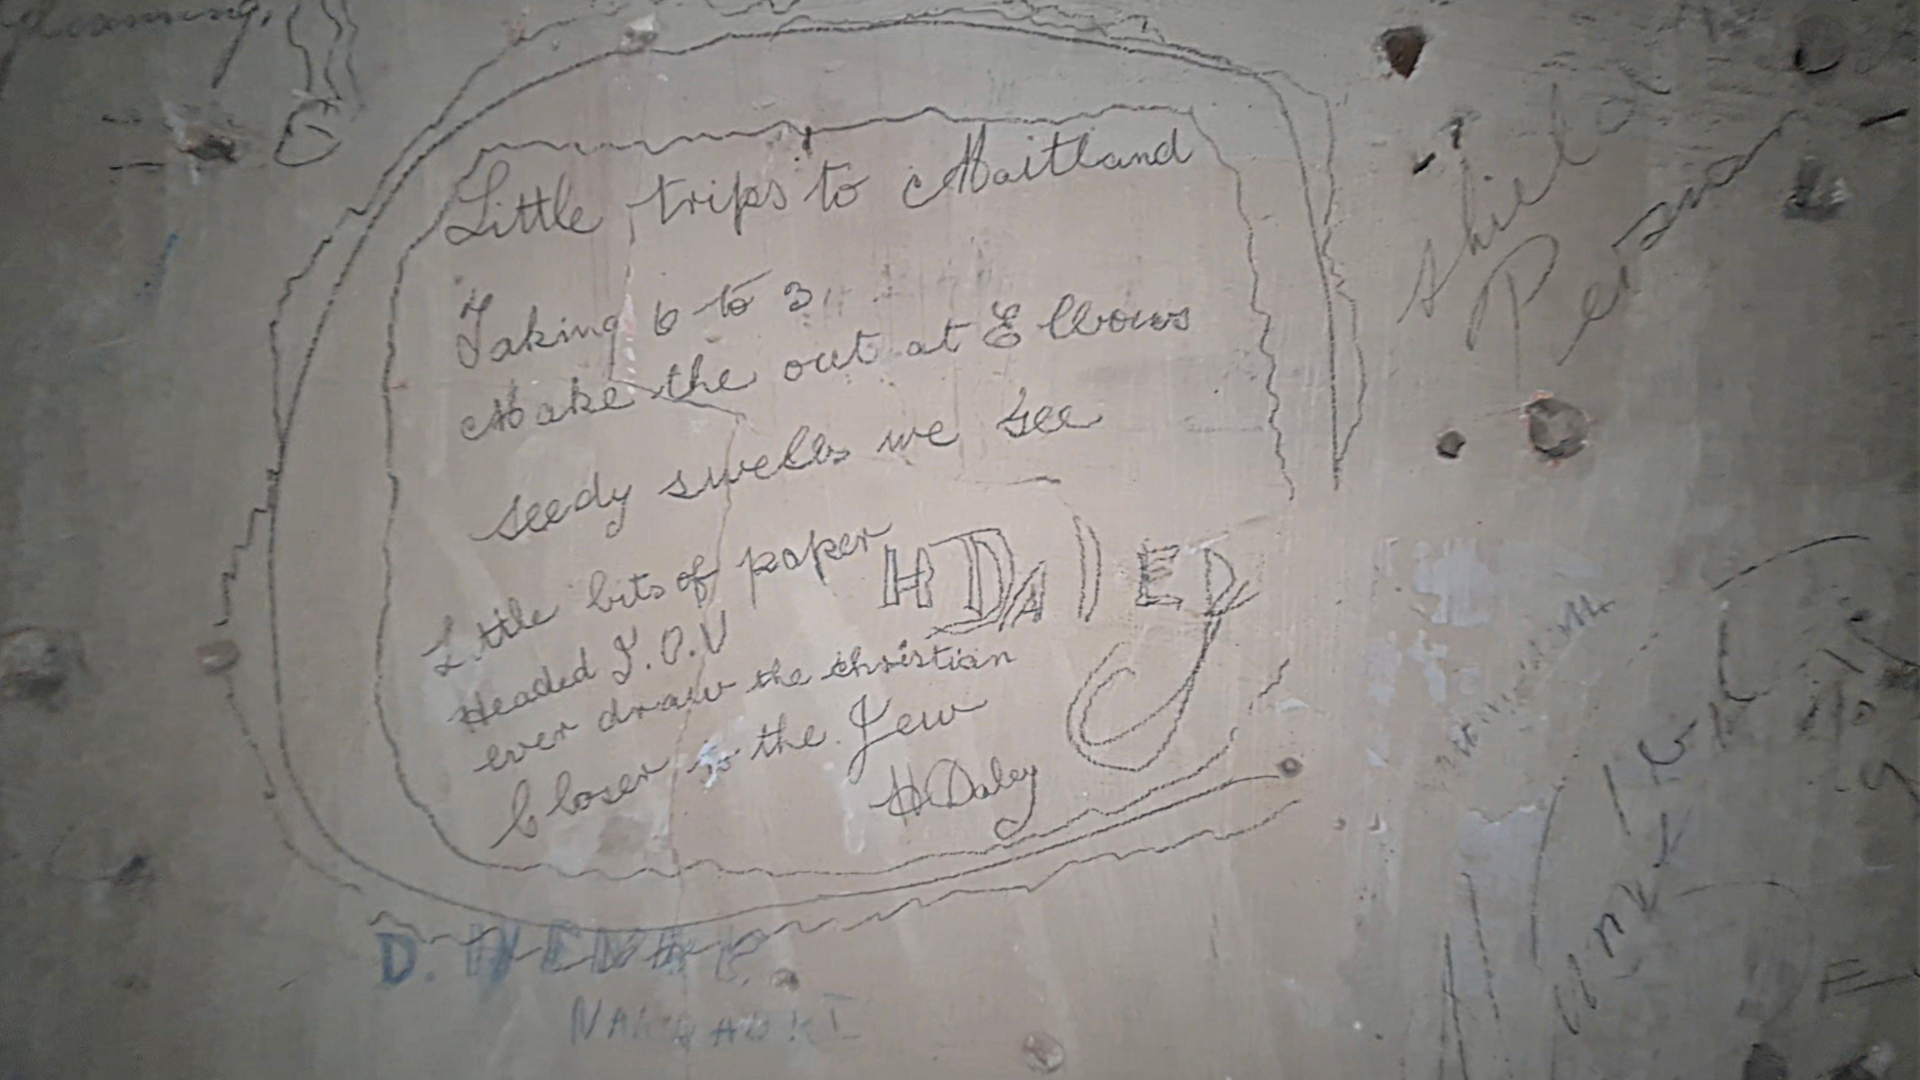 Little trips to Maitland
Taking 6 to 3
Make the out at Elbows
seedy swells we see
Little bits of paper
Headed I.O.U
ever draw the christian
Closer to the Jew
H Daley
H DALEY
shield
Pearson
D.